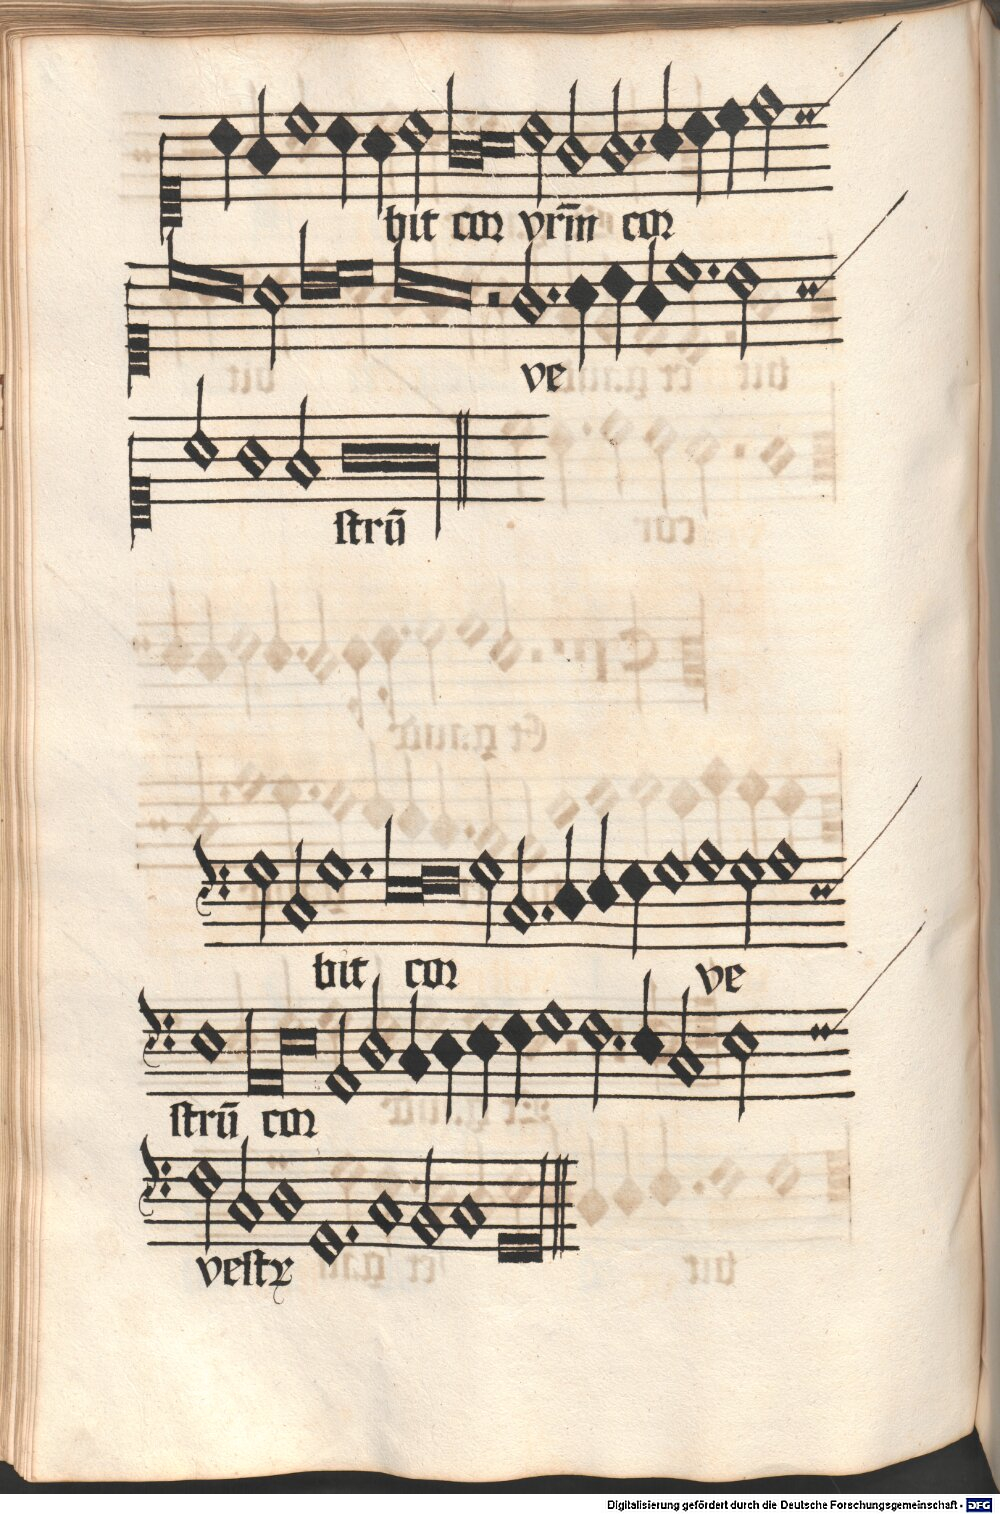 bit cor vrm̄ cor
ve
strū
bit cor ve
strū cor
vestꝝ
Digitalisierung gefördert durch die Deutsche Forschungsgemeinschaft - DFG